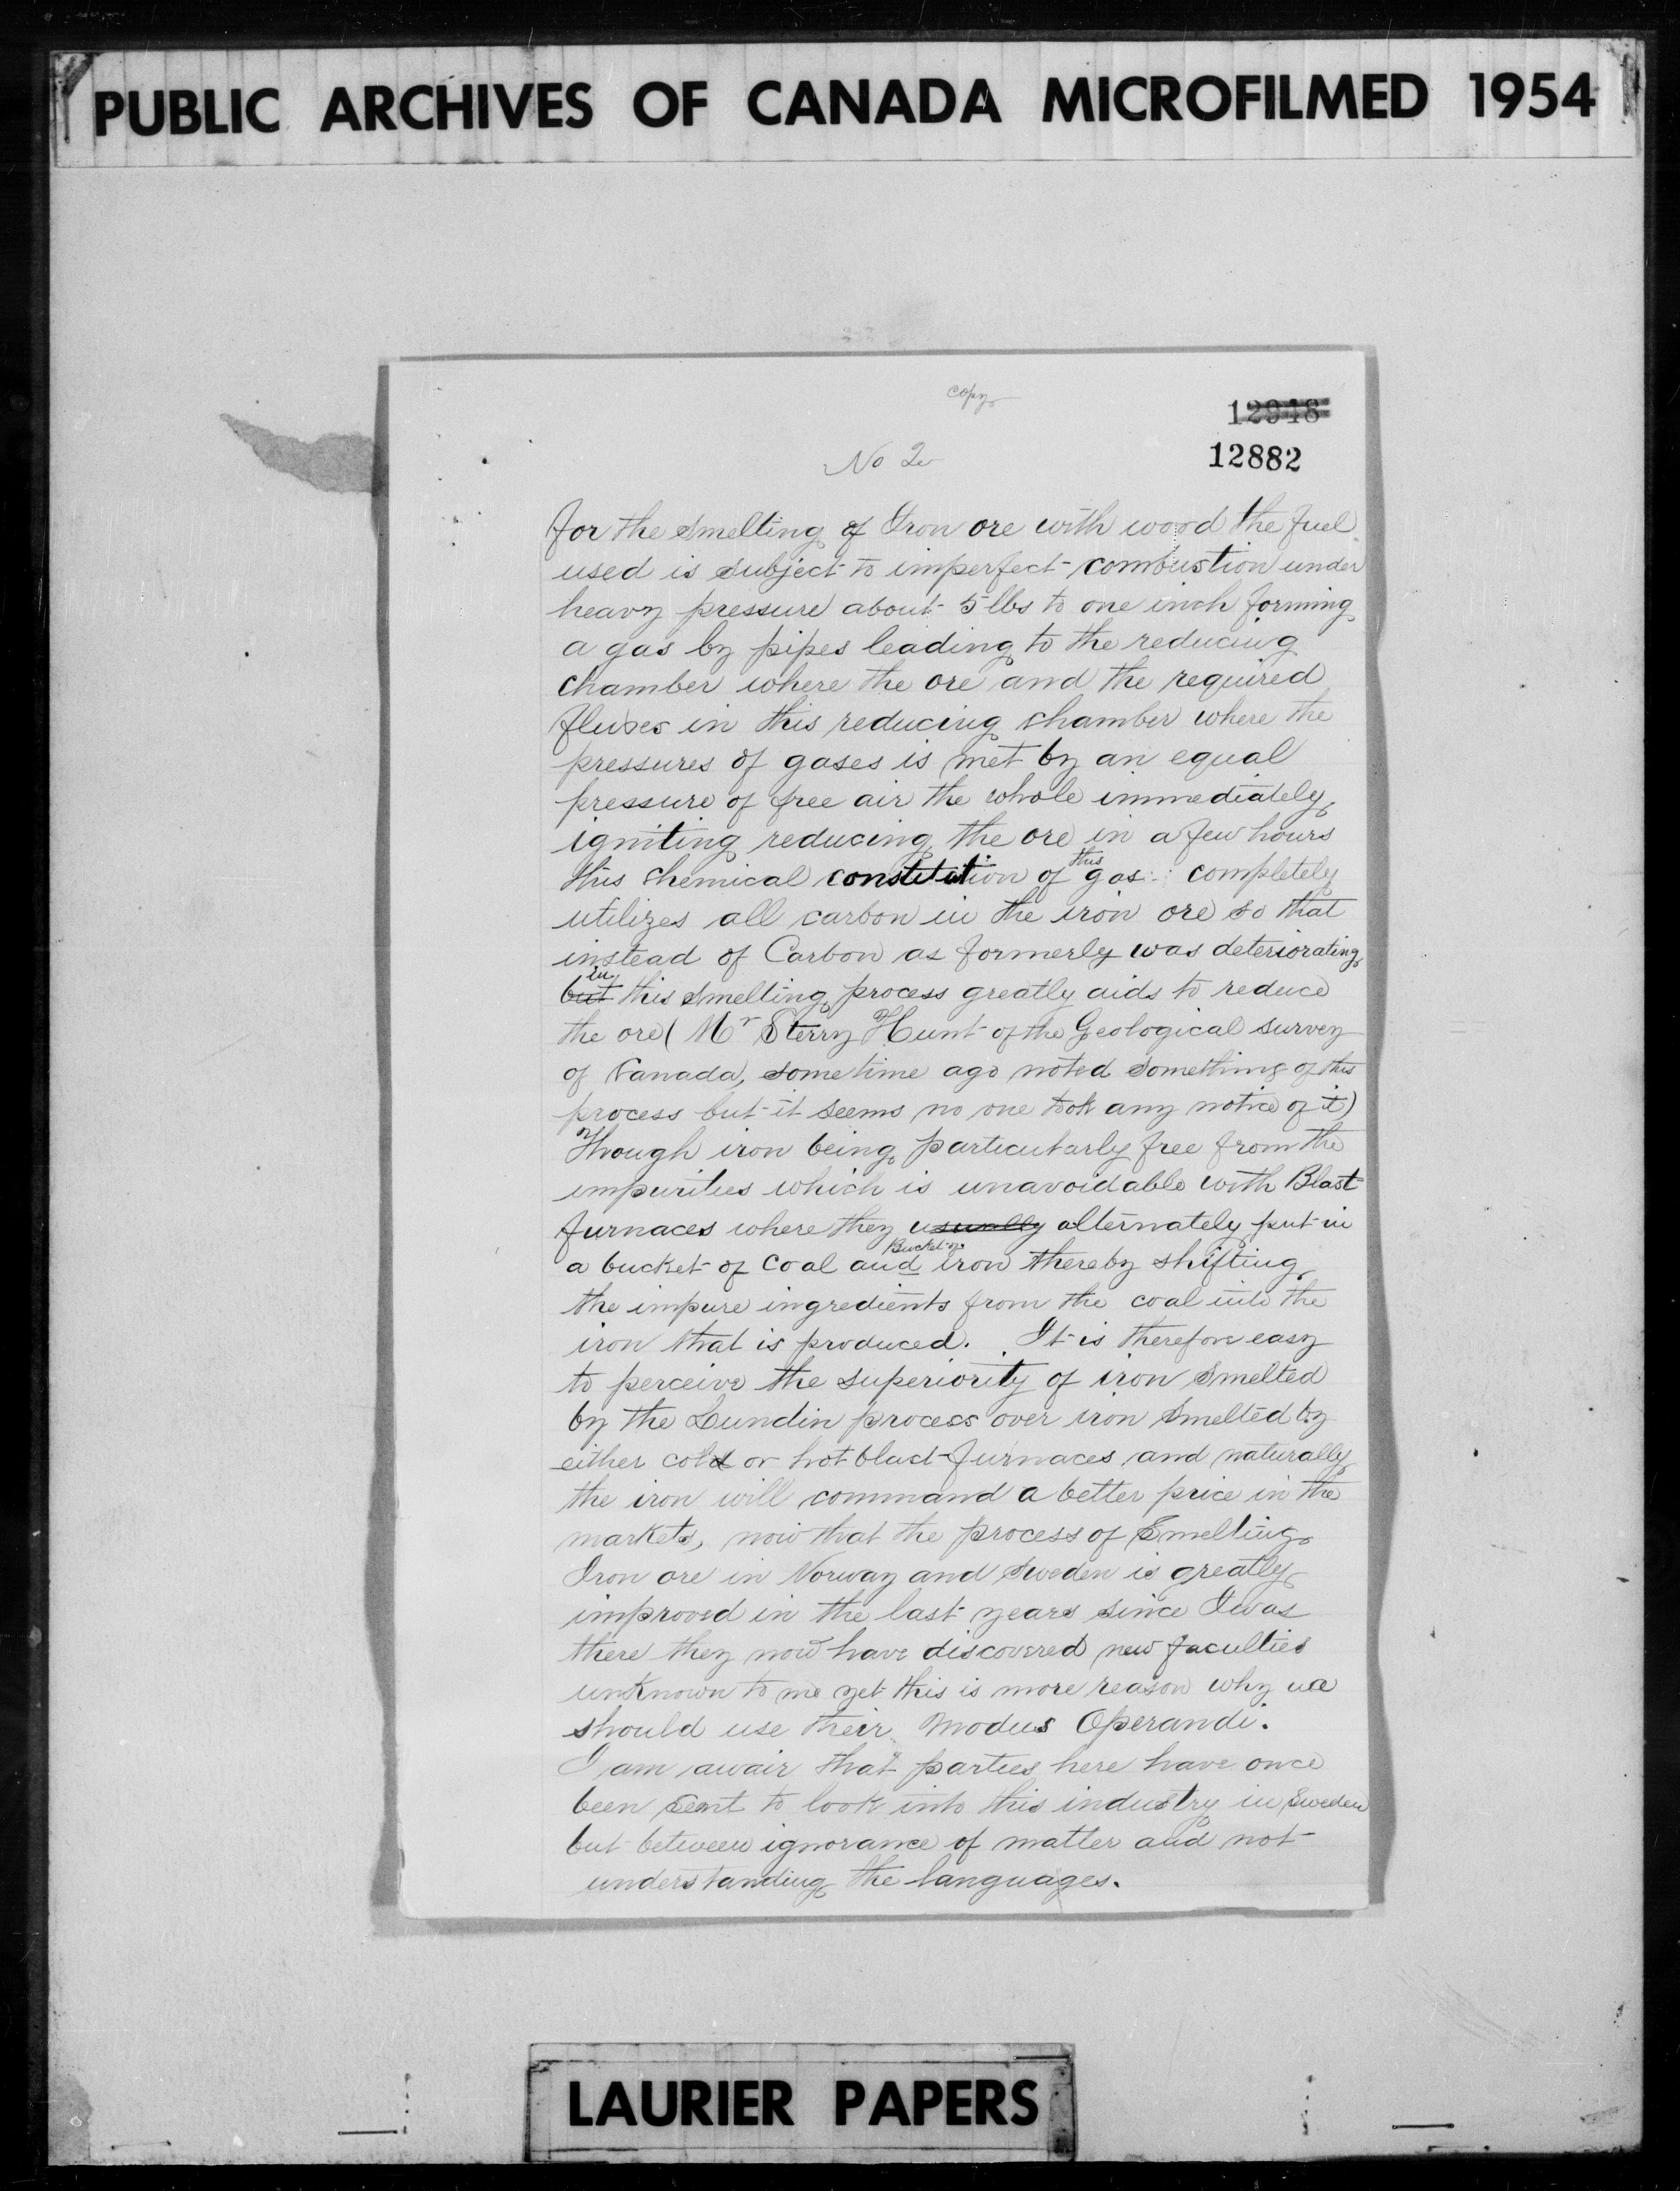 PUBLIC ARCHIVES OF CANADA MICROFILMED 1954
copy
12948
No 2
12882
for the smelting of Iron ore with wood the fuel
used is subject to imperfect combustion under
heavy pressure about 5 lbs to one inch forming
a gas by pipes leading to the reducing
chamber where the ore and the required
fluxes in this reducing chamber where the
pressures of gases is met by an equal
pressure of free air the whole immediately
igniting reducing the ore in a few hours
this
this chemical constitution of gas completely
utilizes all carbon in the iron ore so that
instead of Carbon as formerly was deteriorating
in
but this smelting process greatly aids to reduce
the ore (Mr Sterry Hunt of the Geological survey
of Canada, some time ago noted something of this
process but it seems no one took any notice of it)
Though iron being particularly free from the
impurities which is unavoidable with Blast
furnaces where they usually alternately put in
Bucket of
a bucket of coal and iron thereby shifting
the impure ingredients from the coal into the
iron that is produced. It is therefore easy
to perceive the superiority of iron smelted
by the Lundin process over iron smelted by
either cold or hot blast furnaces and naturally
the iron will command a better price in the
markets, now that the process of Smelting
Iron ore in Norway and Sweden is greatly
improved in the last years since I was
there they now have discovered new faculties
unknown to me yet this is more reason why we
should use their Modus Operandi.
I am awair that parties here have once
been sent to look into this industry in Sweden
but between ignorance of matter and not
understanding the languages.
LAURIER PAPERS